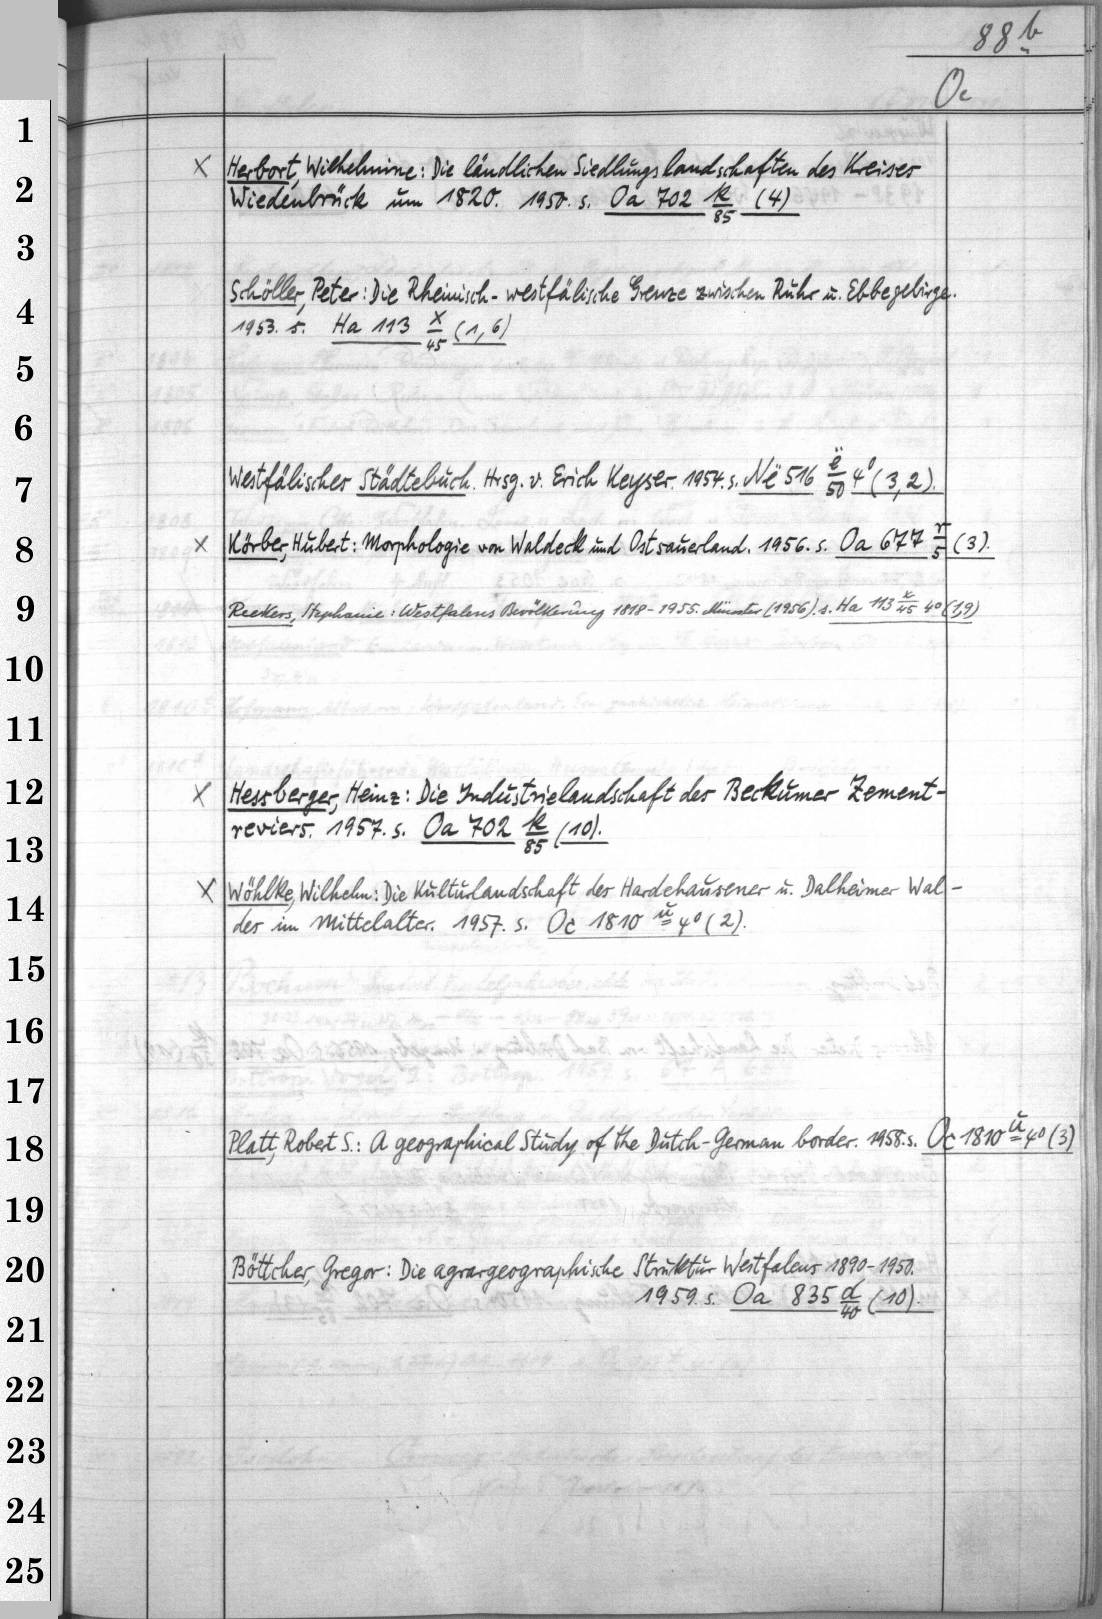 88 b
Oc
1
2
3
4
5
6
7
8
9
10
11
12
13
14
15
16
17
18
19
20
21
22
23
24
25
x Herbort, Wilhelmine: Die ländlichen Siedlungslandschaften des Kreises
Wiedenbrück um 1820. 1950. s. Oa 702 k/85 (4)
Schöller, Peter: Die Rheinisch-westfälische Grenze zwischen Ruhr u. Ebbegebirge.
1953. s. Ha 113 x/45 (1,6)
Westfälisches Städtebuch. Hrsg. v. Erich Keyser. 1954. s. Në 516 ë/50 4° (3,2).
x Körber, Hubert: Morphologie von Waldeck und Ostsauerland. 1956. s. Oa 677 r/5 (3).
Reekers, Stephanie: Westfalens Bevölkerung 1818-1955. Münster (1956). s. Ha 113 x/45 4° (1,9)
x Hessberger, Heinz: Die Industrielandschaft des Beckumer Zement-
reviers. 1957. s. Oa 702 k/85 (10).
x Wöhlke, Wilhelm: Die Kulturlandschaft des Hardehausener u. Dalheimer Wal-
des im Mittelalter. 1957. s. Oc 1810 u 4° (2).
Platt, Robert S.: A geographical Study of the Dutch-German border. 1958. s. Oc 1810 u 4° (3)
Böttcher, Gregor: Die agrargeographische Struktur Westfalens 1890-1950.
1959. s. Oa 835 d/40 (10).